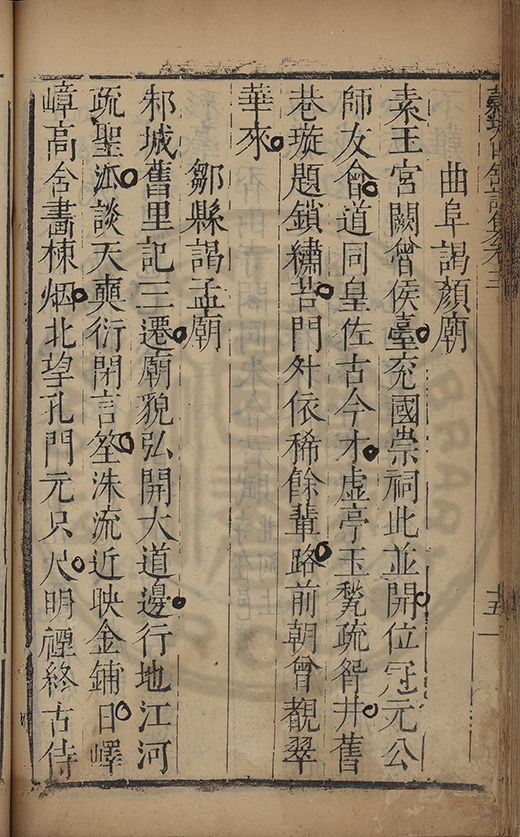 曲阜謁顏廟
素王宮闕魯侯臺兖國崇祠此並開位冠元公
師友會道同皇佐古今才虛亭玉甃疏㫺井舊
巷璇題鎖繡苔門外依稀餘輦路前朝曾覩翠
華來
鄒縣謁孟廟
邾城舊里記三遷廟貌弘開大道邊行地江河
疏聖派談天奭衍閉言筌洙流近映金鋪日嶧
嶂高含畫棟烟北望孔門元只尺明禋終古侍